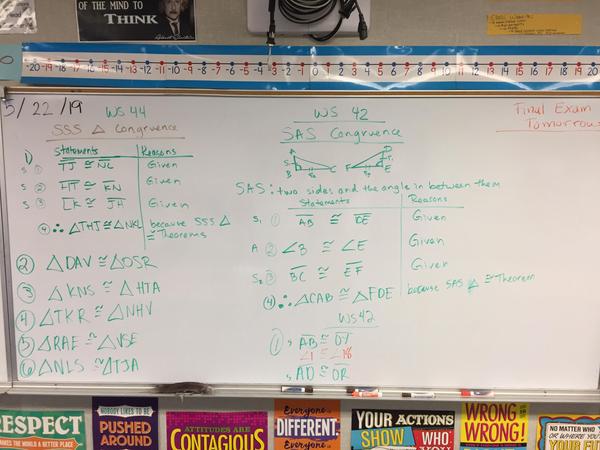 OF THE MIND TO
THINK
-20 -19 -18 -17 -16 -15 -14 -13 -12 -11 -10 -9 -8 -7 -6 -5 -4 -3 -2 -1 0 1 2 3 4 5 6 7 8 9 10 11 12 13 14 15 16 17 18 19 20
5/22/19
WS 44
SSS △ Congruence
1)
Statements Reasons
S ① TJ ≅ NL Given
S ② HT ≅ KN Given
S ③ LK ≅ JH Given
④ ∴ △THJ ≅ △NKL because SSS △
≅ Theorems
② △DAV ≅ △OSR
③ △KNS ≅ △HTA
④ △TKR ≅ △NHV
⑤ △RAE ≅ △VSE
⑥ △NLS ≅ △TJA
WS 42
SAS Congruence
A
B
C
D
E
F
SAS: two sides and the angle in between them
Statements Reasons
S₁ ① AB ≅ DE Given
A ② ∠B ≅ ∠E Given
S₂ ③ BC ≅ EF Given
④ ∴ △CAB ≅ △FDE because SAS △ ≅ Theorem
WS42
① S AB ≅ DY
∠1 ≅ ∠18
S AD ≅ OR
Final Exam
Tomorrow
RESPECT
MAKES THE WORLD A BETTER PLACE
NOBODY LIKES TO BE
PUSHED
AROUND
ATTITUDES ARE
CONTAGIOUS
Everyone is
DIFFERENT.
Everyone is
YOUR ACTIONS
SHOW WHO
WRONG IS
WRONG!
NO MATTER WHO
OR WHERE YOU
YOUR